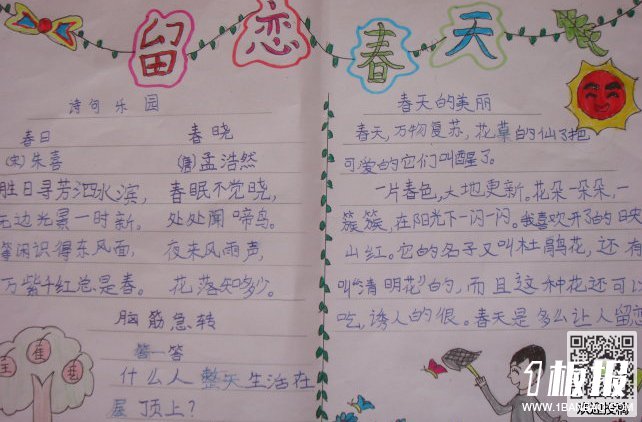 留恋春天
诗句乐园
春日
(宋)朱喜
胜日寻芳泗水滨，
无边光景一时新。
等闲识得东风面，
万紫千红总是春。
春晓
(唐)孟浩然
春眠不觉晓，
处处闻啼鸟。
夜来风雨声，
花落知多少。
脑筋急转
猜一答
什么人整天生活在
屋顶上？
春天的美丽
春天，万物复苏，花草的仙子把
可爱的它们叫醒了。
一片春色，大地更新。花朵一朵朵，一
簇簇，在阳光下一闪一闪。我喜欢开了的映
山红。它的名子又叫杜鹃花，还有
叫"清明花"的，而且这种花还可以
吃，诱人的很。春天是多么让人留恋
1板报
WWW.1BANBAO.COM
欢迎投稿